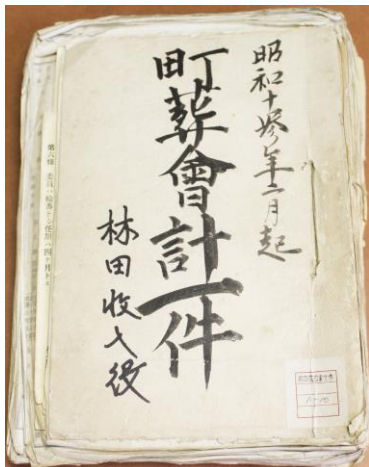 昭和十参年二月起
町葬會計一件
林田収入役